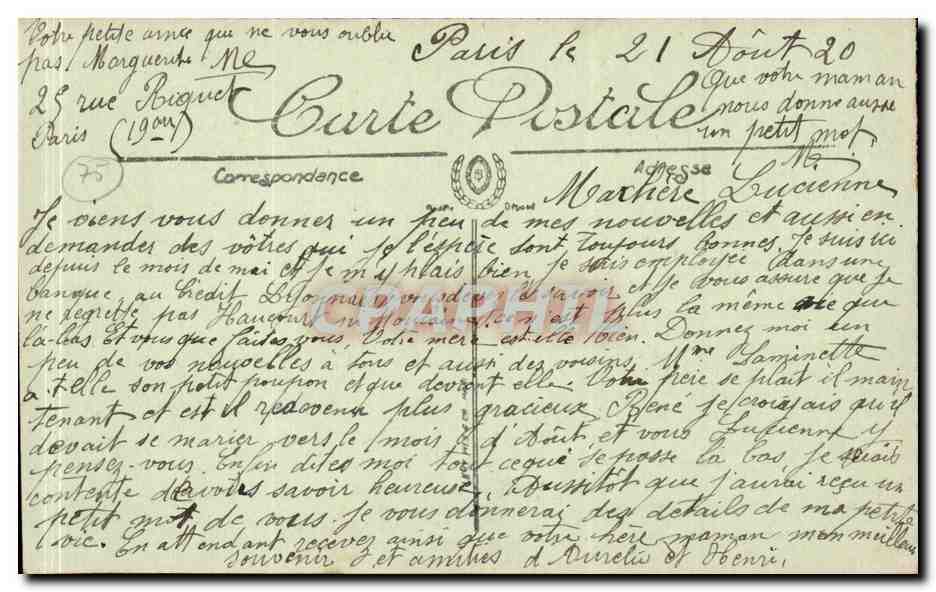 Votre petite amie que ne vous oublie
pas Marguerite Me
25 rue Riquet
Paris (19em)
Paris le 21 Aôut 20
Que votre maman
nous donne aussi
un petit mot.
M.
Carte Postale
75
Correspondance
Adresse
Ma chère Lucienne
Je viens vous donner un peu de mes nouvelles et aussi en
demander des vôtres qui je l'espère sont toujours bonnes. Je suis ici
depuis le mois de mai et je m'y plais bien je suis employée dans une
banque, au Crédit Lyonnais vous devez le savoir et je vous assure que je
ne regrette pas Haucourt ni c'est plus la même vie que
là-bas. Et vous que faites vous, Votre mère est elle bien. Donnez moi un
peu de vos nouvelles à tous et aussi des voisins. Mme Laminette
a t elle son petit poupon et que devient elle. Votre frère se plait il main
tenant et est il redevenu plus gracieux René je croyais qu'il
devait se marier vers le mois d'Aôut, et vous Lucienne y
pensez-vous. Enfin dites moi tout ce qui se passe la bas je serais
contente de vous savoir heureuse. Aussitôt que j'aurai reçu un
petit mot de vous je vous donnerai des details de ma petite
vie. En attendant recevez ainsi que votre chère maman mon meilleur
souvenir et amitiés d'Aurélie et Henri.
CPARHI